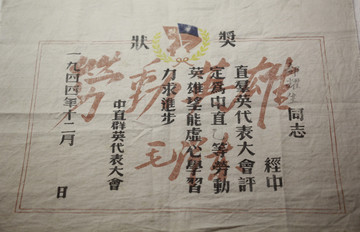 獎狀
同志 經中
直羣英代表大會評
定為中直 等勞動
英雄望能虛心學習
力求進步
中直群英代表大會
一九四四年十二月 日
勞動英雄
毛澤東